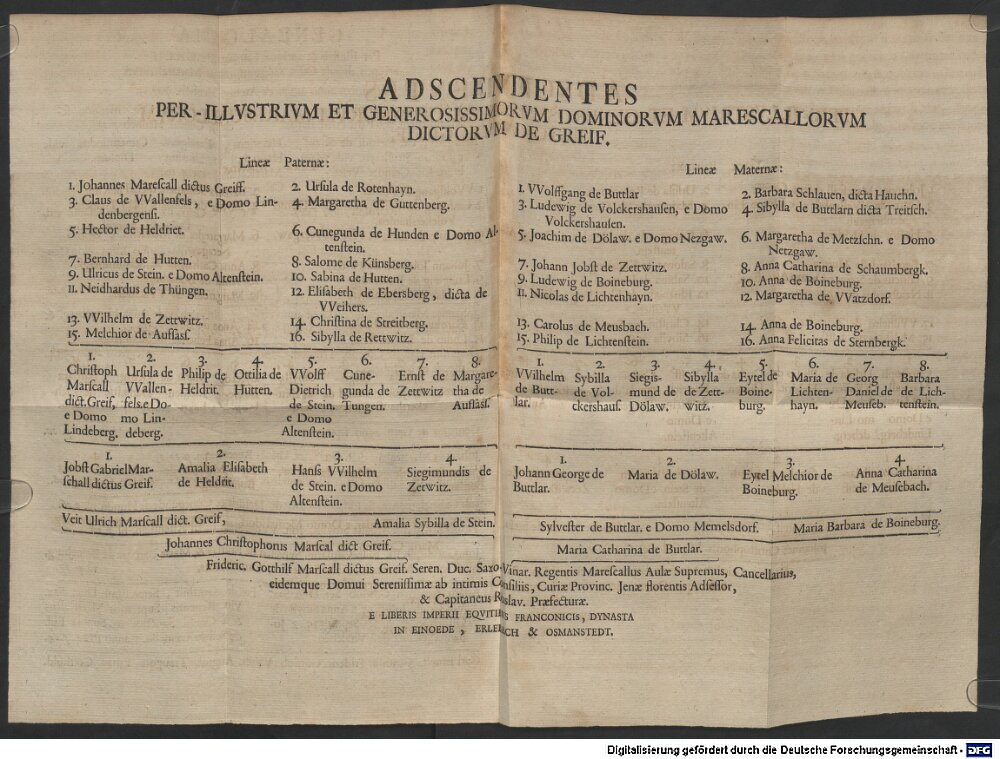 ADSCENDENTES
PER-ILLVSTRIVM ET GENEROSISSIMORVM DOMINORVM MARESCALLORVM
DICTORVM DE GREIF.
Lineæ Paternæ:
1. Johannes Mareſcall dictus Greiff.
2. Urſula de Rotenhayn.
3. Claus de VVallenfels, e Domo Lin-
denbergenſi.
4. Margaretha de Guttenberg.
5. Hector de Heldriet.
6. Cunegunda de Hunden e Domo Al-
tenſtein.
7. Bernhard de Hutten.
8. Salome de Künsberg.
9. Ulricus de Stein. e Domo Altenſtein.
10. Sabina de Hutten.
11. Neidhardus de Thüngen.
12. Eliſabeth de Ebersberg, dicta de
VVeihers.
13. VVilhelm de Zettwitz.
14. Chriſtina de Streitberg.
15. Melchior de Auffaſſ.
16. Sibylla de Rettwitz.
Lineæ Maternæ:
1. VVolffgang de Buttlar
2. Barbara Schlauen, dicta Hauchn.
3. Ludewig de Volckershauſen, e Domo
Volckershauſen.
4. Sibylla de Buttlarn dicta Treitſch.
5. Joachim de Dölaw. e Domo Nezgaw.
6. Margaretha de Metzſchn. e Domo
Netzgaw.
7. Johann Jobſt de Zettwitz.
8. Anna Catharina de Schaumbergk.
9. Ludewig de Boineburg.
10. Anna de Boineburg.
11. Nicolas de Lichtenhayn.
12. Margaretha de VVatzdorf.
13. Carolus de Meusbach.
14. Anna de Boineburg.
15. Philip de Lichtenſtein.
16. Anna Felicitas de Sternbergk.
1.
Chriſtoph
Marſcall
dict. Greif,
e Domo
Lindeberg.
2.
Urſula de
VVallen-
fels. e Do-
mo Lin-
deberg.
3.
Philip de
Heldrit.
4.
Ottilia de
Hutten.
5.
VVolff
Dietrich
de Stein.
e Domo
Altenſtein.
6.
Cune-
gunda de
Tungen.
7.
Ernſt de
Zettwitz
8.
Margare-
tha de
Auffaſſ.
1.
VVilhelm
de Butt-
lar.
2.
Sybilla
de Vol-
ckershauſ.
3.
Siegis-
mund de
Dölaw.
4.
Sibylla
de Zett-
witz.
5.
Eytel de
Boine-
burg.
6.
Maria de
Lichten-
hayn.
7.
Georg
Daniel de
Meuſeb.
8.
Barbara
de Lich-
tenſtein.
1.
Jobſt Gabriel Mar-
ſchall dictus Greif.
2.
Amalia Eliſabeth
de Heldrit.
3.
Hanſs VVilhelm
de Stein. e Domo
Altenſtein.
4.
Siegimundis de
Zetwitz.
1.
Johann George de
Buttlar.
2.
Maria de Dölaw.
3.
Eytel Melchior de
Boineburg.
4.
Anna Catharina
de Meuſebach.
Veit Ulrich Marſcall dict. Greif,
Amalia Sybilla de Stein.
Sylveſter de Buttlar. e Domo Memelsdorf.
Maria Barbara de Boineburg.
Johannes Chriſtophorus Marſcal dict Greif.
Maria Catharina de Buttlar.
Frideric. Gotthilf Marſcall dictus Greif. Seren. Duc. Saxo-Vinar. Regentis Mareſcallus Aulæ Supremus, Cancellarius,
eidemque Domui Sereniſſimæ ab intimis Conſiliis, Curiæ Provinc. Jenæ florentis Adſeſſor,
& Capitaneus Roslav. Præfecturæ.
E LIBERIS IMPERII EQVITIBUS FRANCONICIS, DYNASTA
IN EINOEDE, & OSMANSTEDT.
Digitalisierung gefördert durch die Deutsche Forschungsgemeinschaft - DFG